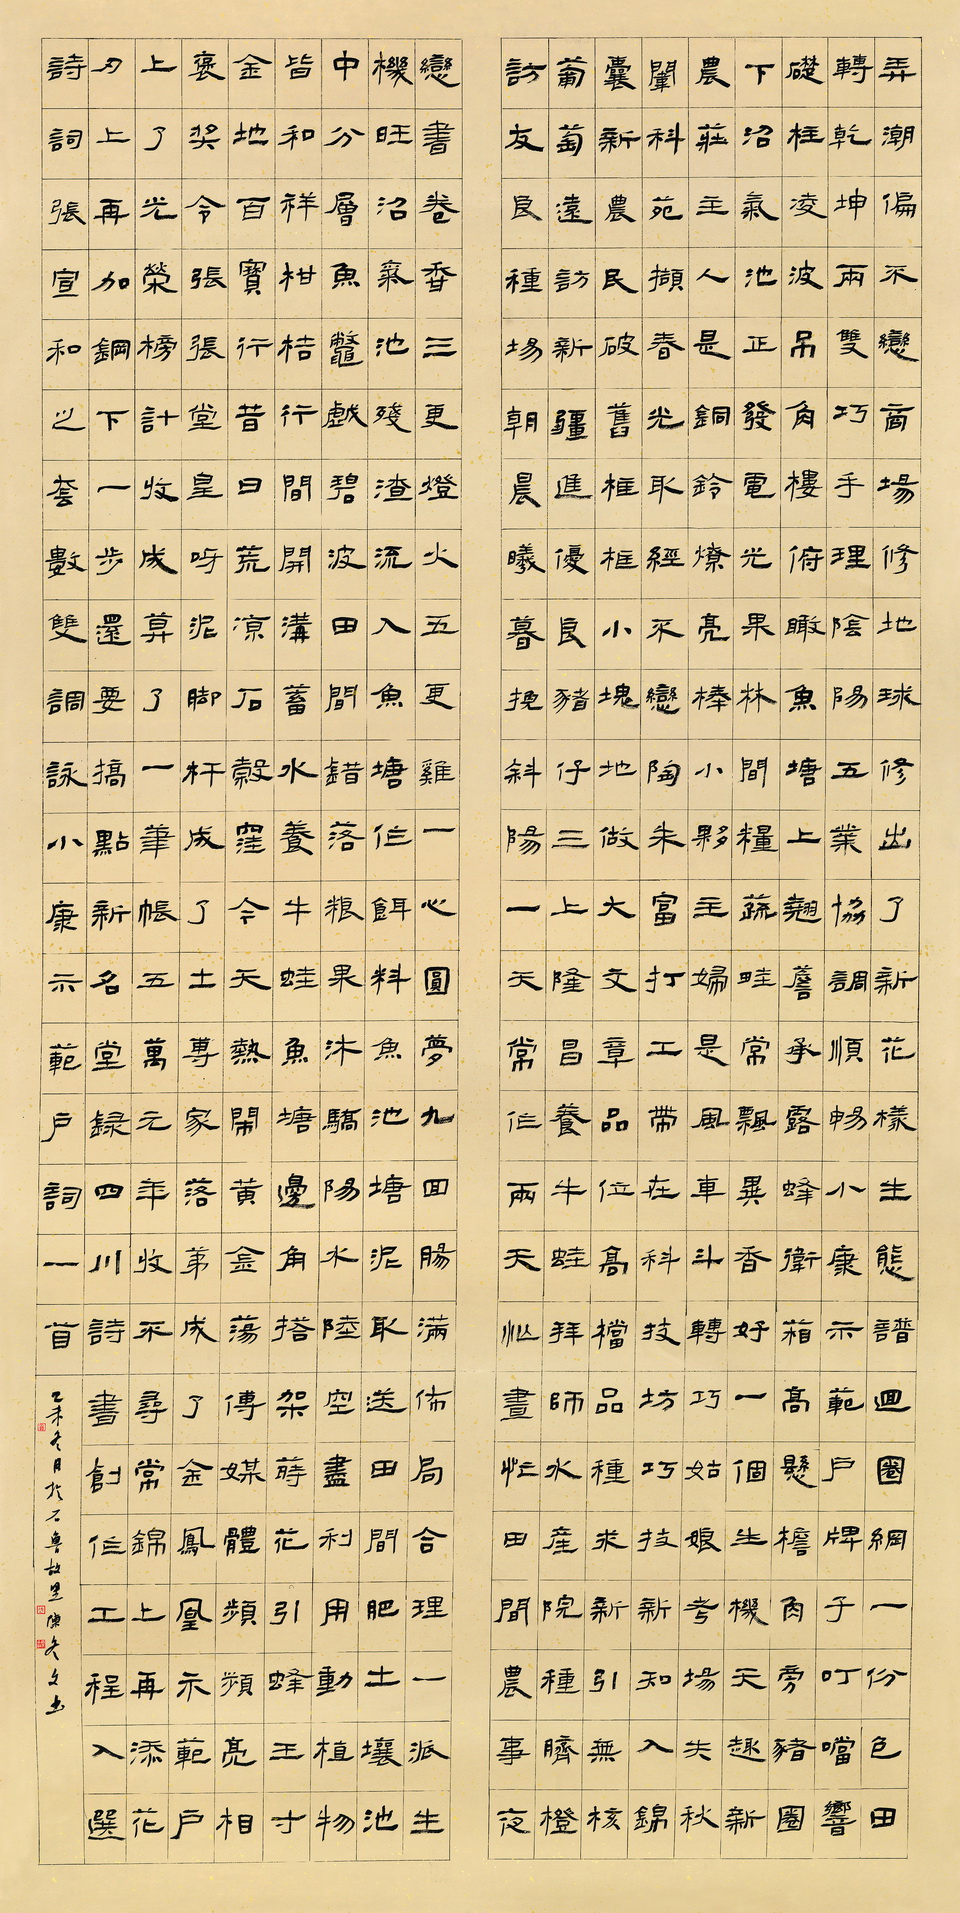 弄潮偏不戀商場修地球修出了新花樣生態譜迴圈網一份色田
轉乾坤兩雙巧手理陰陽五業協調順暢小康示範戶牌子叮噹響
礎柱凌波吊角樓俯瞰魚塘上翹簷承露蜂衛箱高懸檐角旁豬圈
下沼氣池正發電光果林間糧蔬畦常飄異香好一個生機天趣新
農莊主人是銅鈴燎亮棒小夥主婦是風車斗轉巧姑娘考場失秋
闈科苑擷春光取經不戀陶朱富打工帶在科技坊巧技新知入錦
囊新農民破舊框框小塊地做大文章品位高檔品種求新引無核
葡萄遠訪新疆進優良豬仔三上隆昌養牛蛙拜師水產院種臍橙
訪友良種場朝晨曦暮挽斜陽一天常作兩天忙晝忙田間農事夜
戀書卷香三更燈火五更雞一心圓夢九回腸滿佈局合理一派生
機旺沼氣池殘渣流入魚塘作餌料魚池塘泥取送田間肥土壤池
中分層魚鱉戲碧波田間錯落粮果沐驕陽水陸空盡利用動植物
皆和祥柑桔行間開溝蓄水養牛蛙魚塘邊角搭架蒔花引蜂王寸
金地百寶行昔日荒涼石穀窪今天熱鬧黃金蕩傳媒體頻頻亮相
褒奖令張張堂皇呀泥脚杆成了土專家落第成了金鳳凰示範戶
上了光榮榜計收成算了一筆帳五萬元年收不尋常錦上再添花
刃上再加鋼下一步還要搞點新名堂録四川詩書創作工程入選
詩詞張宣和之套數雙調詠小康示範戶詞一首
乙未冬月於石魯故里陳冬文書